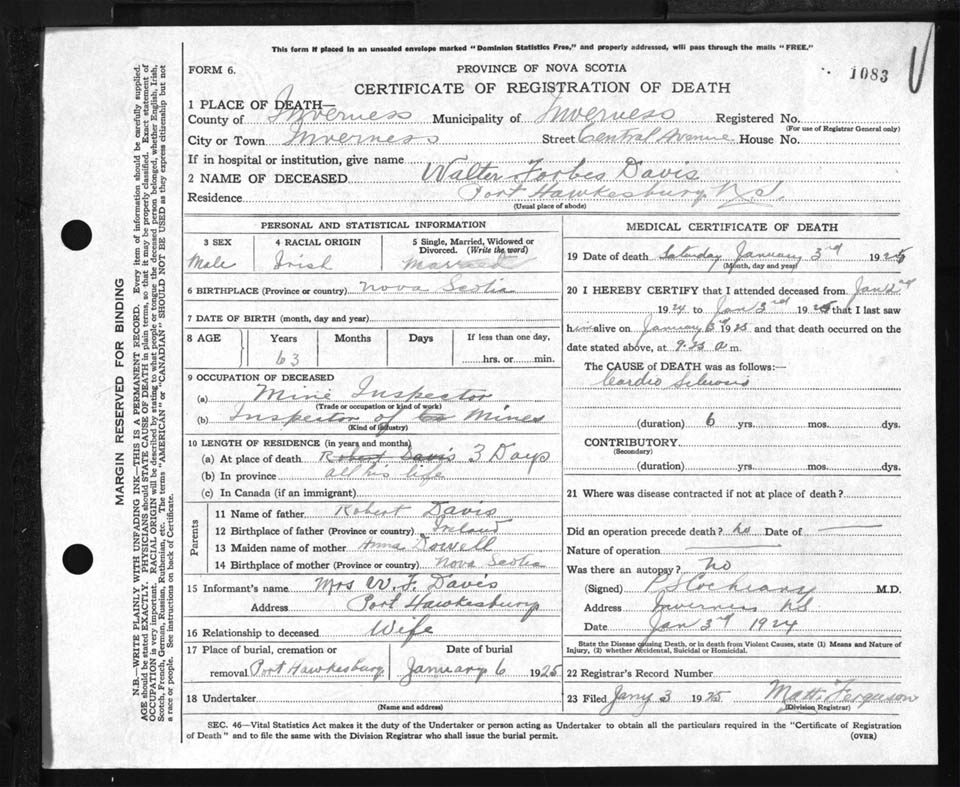 This form if placed in an unsealed envelope marked "Dominion Statistics Free," and properly addressed, will pass through the mails "FREE."
FORM 6.
PROVINCE OF NOVA SCOTIA
1083
CERTIFICATE OF REGISTRATION OF DEATH
1 PLACE OF DEATH—
County of Inverness Municipality of Inverness Registered No.
(For use of Registrar General only)
City or Town Inverness Street Central Avenue House No.
If in hospital or institution, give name
2 NAME OF DECEASED Walter Forbes Davis
Residence Port Hawkesbury N.S.
(Usual place of abode)
PERSONAL AND STATISTICAL INFORMATION
3 SEX 4 RACIAL ORIGIN 5 Single, Married, Widowed or Divorced. (Write the word)
Male Irish Married
6 BIRTHPLACE (Province or country) Nova Scotia
7 DATE OF BIRTH (month, day and year)
8 AGE Years Months Days If less than one day,
63 hrs. or min.
9 OCCUPATION OF DECEASED
(a) Mine Inspector
(Trade or occupation or kind of work)
(b) Inspector of Mines
(Kind of industry)
10 LENGTH OF RESIDENCE (in years and months)
(a) At place of death Robert Davis 3 Days
(b) In province all his life
(c) In Canada (if an immigrant)
Parents
11 Name of father Robert Davis
12 Birthplace of father (Province or country) Ireland
13 Maiden name of mother Anna Dowell
14 Birthplace of mother (Province or country) Nova Scotia
15 Informant's name Mrs W. F. Davis
Address Port Hawkesbury
16 Relationship to deceased Wife
17 Place of burial, cremation or Date of burial
removal Port Hawkesbury January 6 1925
18 Undertaker
(Name and address)
MEDICAL CERTIFICATE OF DEATH
19 Date of death Saturday January 3rd 1925
(Month, day and year)
20 I HEREBY CERTIFY that I attended deceased from Jan 2nd
1924 to Jan 3rd 1925 that I last saw
him alive on January 1925 and that death occurred on
date stated above, at 9.25 a m.
The CAUSE of DEATH was as follows:—
Cardio Sclerosis
(duration) 6 yrs. mos. dys.
CONTRIBUTORY
(Secondary)
(duration) yrs. mos. dys.
21 Where was disease contracted if not at place of death?
Did an operation precede death? no Date of
Nature of operation
Was there an autopsy? no
(Signed) M.D.
Address Inverness NS
Date Jan 3rd 1924
State the Disease causing Death, or in death from Violent Causes, state (1) Means and Nature of
Injury, (2) whether Accidental, Suicidal or Homicidal.
22 Registrar's Record Number
23 Filed Jany 3 1925 Matt. Ferguson
(Division Registrar)
SEC. 46—Vital Statistics Act makes it the duty of the Undertaker or person acting as Undertaker to obtain all the particulars required in the "Certificate of Registration
of Death" and to file the same with the Division Registrar who shall issue the burial permit. (OVER)
MARGIN RESERVED FOR BINDING
N.B.—WRITE PLAINLY WITH UNFADING INK—THIS IS A PERMANENT RECORD. Every item of information should be carefully supplied.
AGE should be stated EXACTLY. PHYSICIANS should STATE CAUSE OF DEATH in plain terms, so that it may be properly classified. Exact statement of
OCCUPATION is very important. RACIAL ORIGIN will be described by stating to what people or tongue the deceased person belonged, whether English, Irish,
Scotch, French, German, Russian, Ruthenian, etc. The terms "AMERICAN" or "CANADIAN" SHOULD NOT BE USED as they express citizenship but not
a race or people. See instructions on back of Certificate.